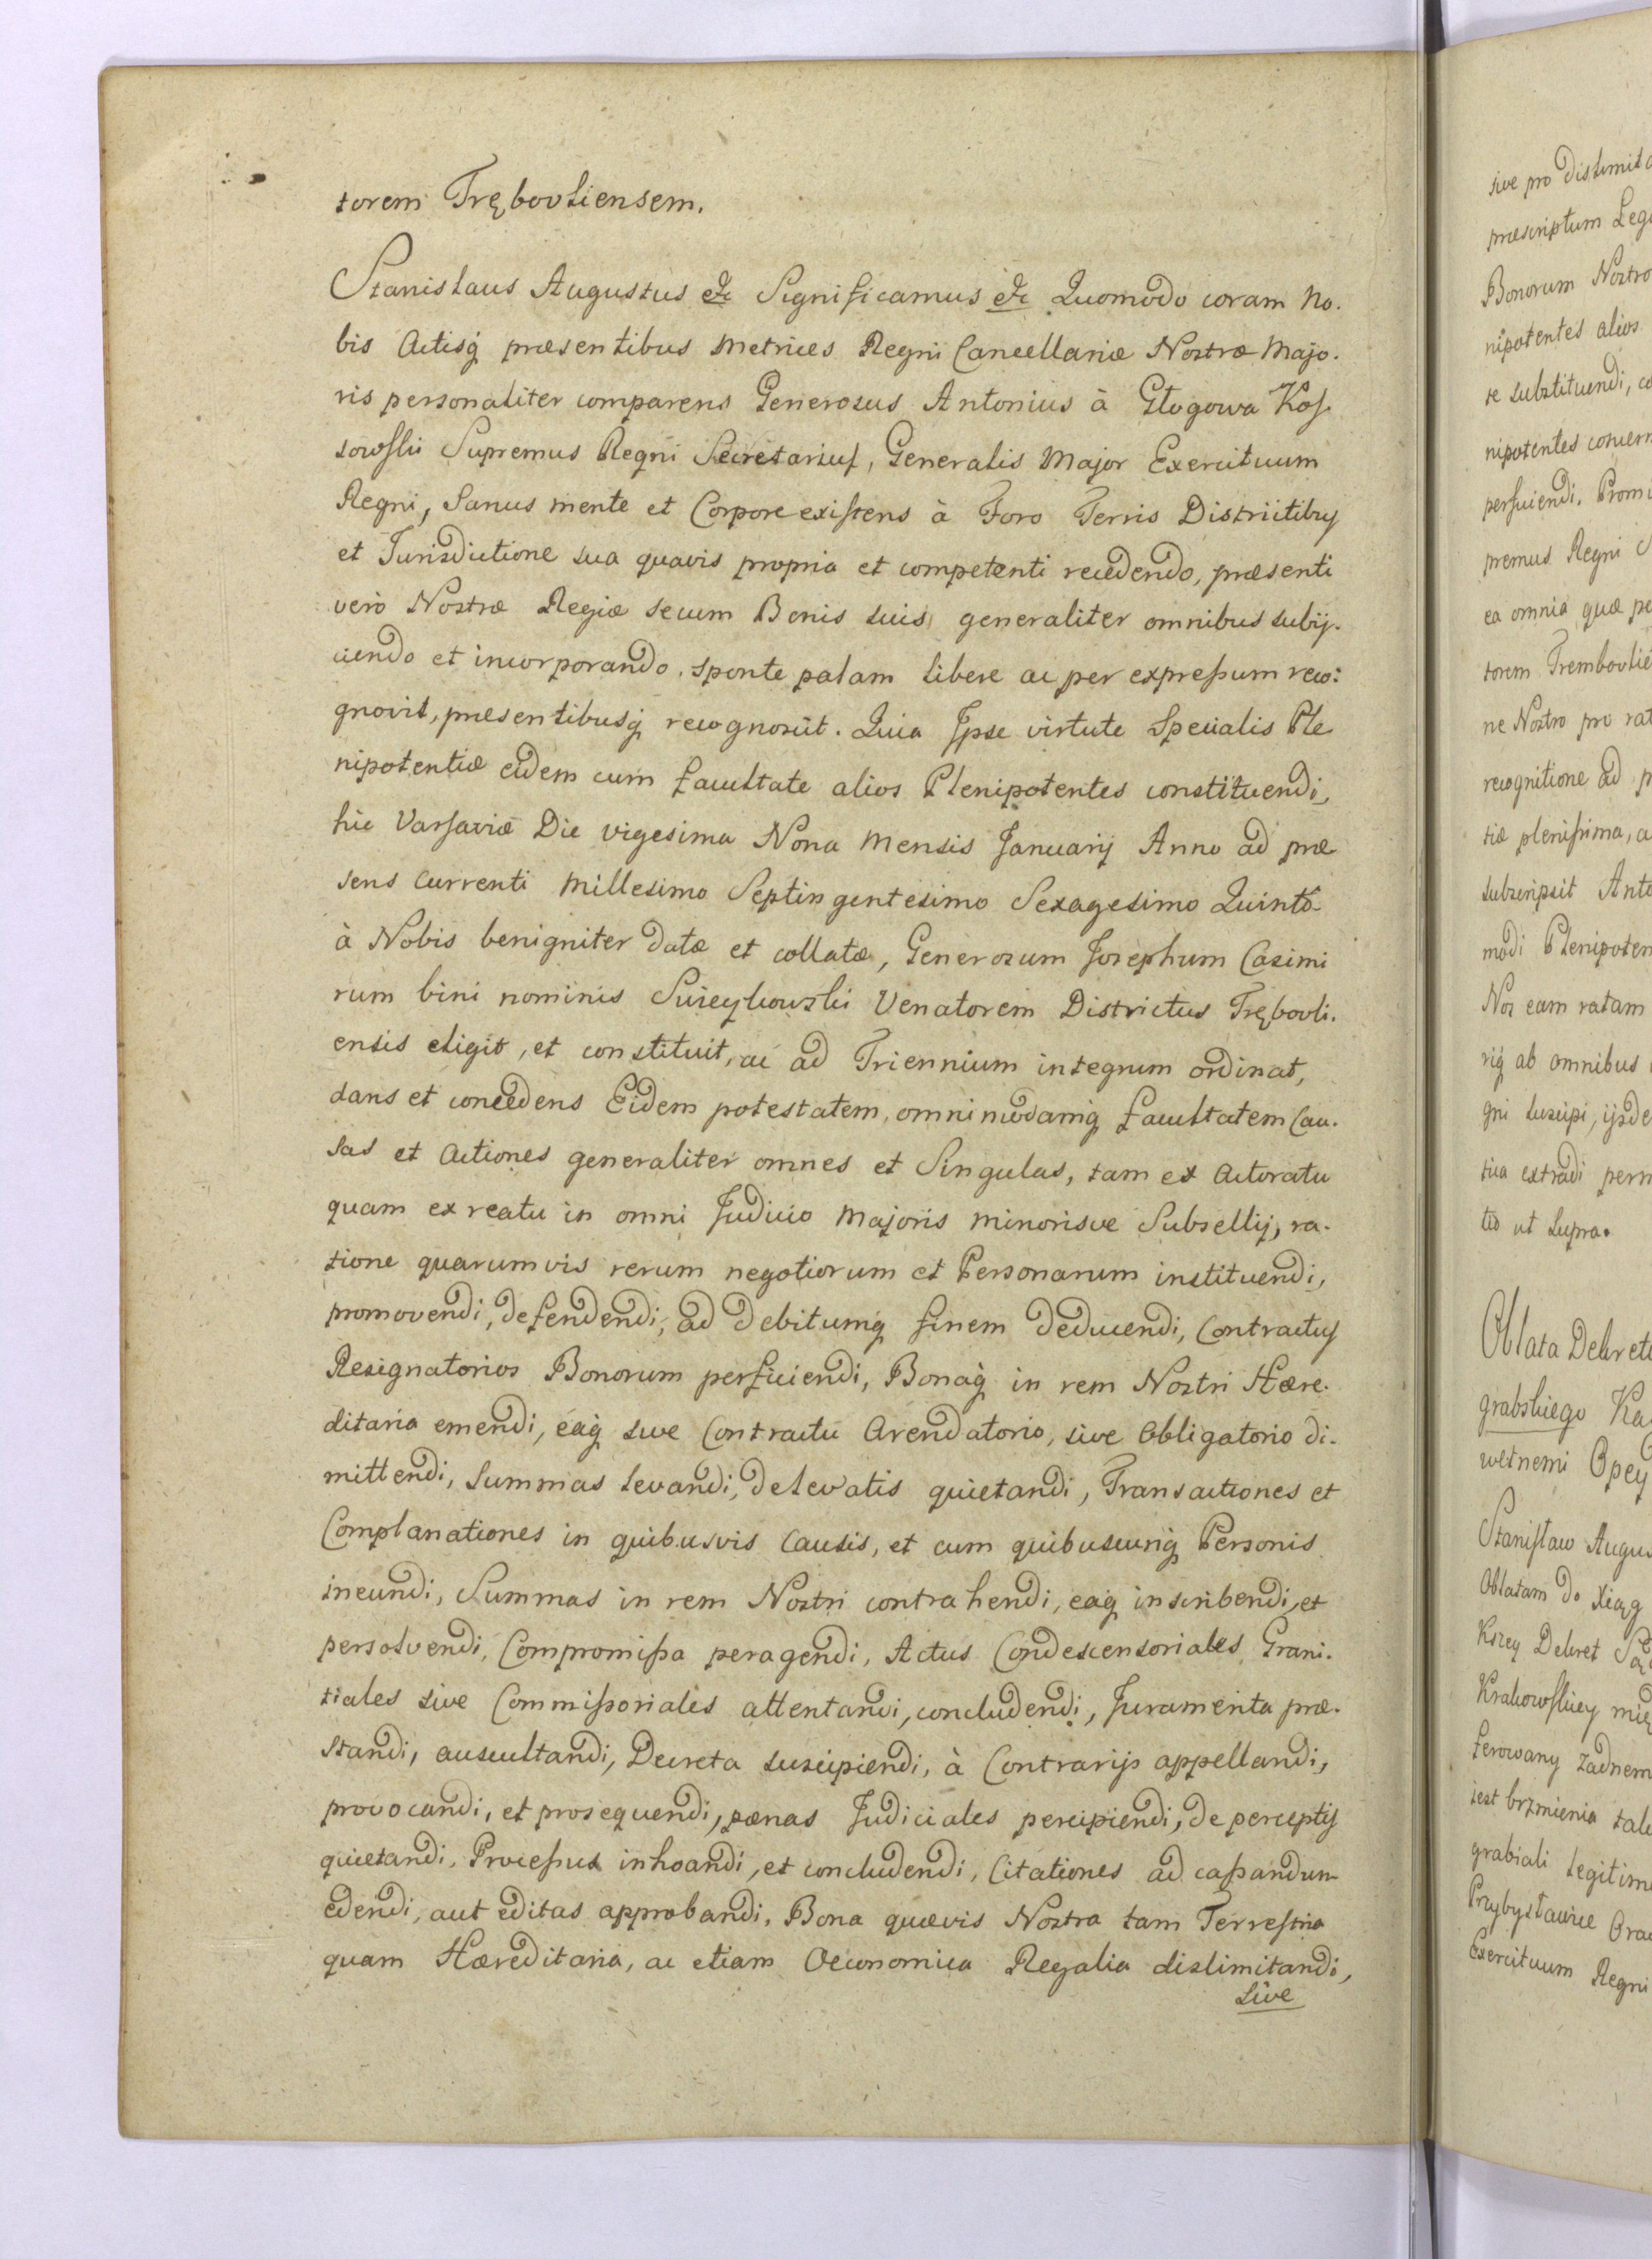 torem Trębovliensem.
Stanislaus Augustus etc Significamus etc Quomodo coram No-
bis Actisq̢ præsentibus Metrices Regni Cancellariæ Nostræ Majo-
ris personaliter comparens Generosus Antonius à Głogowa Kos-
sowski Supremus Regni Secretarius, Generalis Major Exercituum
Regni, Sanus mente et Corpore existens à Foro Terris Districtibus
et Jurisdictione sua quavis propria et competenti recedendo, præsenti
verò Nostræ Regiæ secum Bonis suis generaliter omnibus subij-
ciendo et incorporando, sponte palam libere ac per expressum reco-
gnovit, præsentibusq̢ recognoscit. Quia Ipse virtute Specialis Ple
nipotentiæ eidem cum facultate alios Plenipotentes constituendi,
hic Varsaviæ Die vigesima Nona Mensis Januarij Anno ad præ
sens currenti Millesimo Septingentesimo Sexagesimo Quinto
à Nobis benigniter datæ et collatæ, Generosum Josephum Casimi
rum bini nominis Swieykowski Venatorem Districtus Trębovli-
ensis eligit, et constituit, ac ad Triennium integrum ordinat,
dans et concedens Eidem potestatem, omnimodamq̢ facultatem Cau-
sas et Actiones generaliter omnes et Singulas, tam ex Actoratu
quam ex reatu in omni Judicio Majoris minorisve Subsellij, ra-
tione quarumvis rerum negotiorum et Personarum instituendi,
promovendi, defendendi, ad debitumq̢ finem deducendi, Contractus
Resignatorios Bonorum perficiendi, Bonaq̢ in rem Nostri Hære-
ditaria emendi, eaq̢ sive Contractu Arendatorio, sive Obligatorio di-
mittendi, Summas levandi, de levatis quietandi, Transactiones et
Complanationes in quibusvis Causis, et cum quibuscunq̢ Personis
ineundi, Summas in rem Nostri contrahendi, eaq̢ inscribendi, et
persolvendi, Compromissa peragendi, Actus Condescensoriales Grani-
tiales sive Commissoriales attentandi, concludendi, Juramenta præ-
standi, auscultandi, Decreta suscipiendi, à Contrarijs appellandi,
provocandi, et prosequendi, pænas Judiciales percipiendi, de perceptis
quietandi, Processus inhoandi, et concludendi, Citationes ad cassandum
edendi, aut editas approbandi, Bona quævis Nostra tam Terrestria
quam Hæreditaria, ac etiam Oeconomica Regalia dislimitandi,
sive
sive pro dislimita
præscriptum Leg
Bonorum Nostro
nipotentes alios
re substituendi, co
nipotentes concern
perficiendi. Promi
premus Regni S
ea omnia quæ pe
torem Trembovlie
ne Nostro pro rat
recognitione ad p
tiæ plenissima, a
subscripsit Anto
modi Plenipoten
Nos eam ratam
riq̢ ab omnibus
gni suscipi, ijsde
tua extradi perm
tio ut Supra.
Oblata Dekretu
grabskiego Ka
wetnemi Opey
Stanisław Augus
Oblatam do Xiąg
Krakowskiey mię
ferowany żadnem
iest brzmienia tak
grabiali legitime
Przybysławice Ora
Exercituum Regni